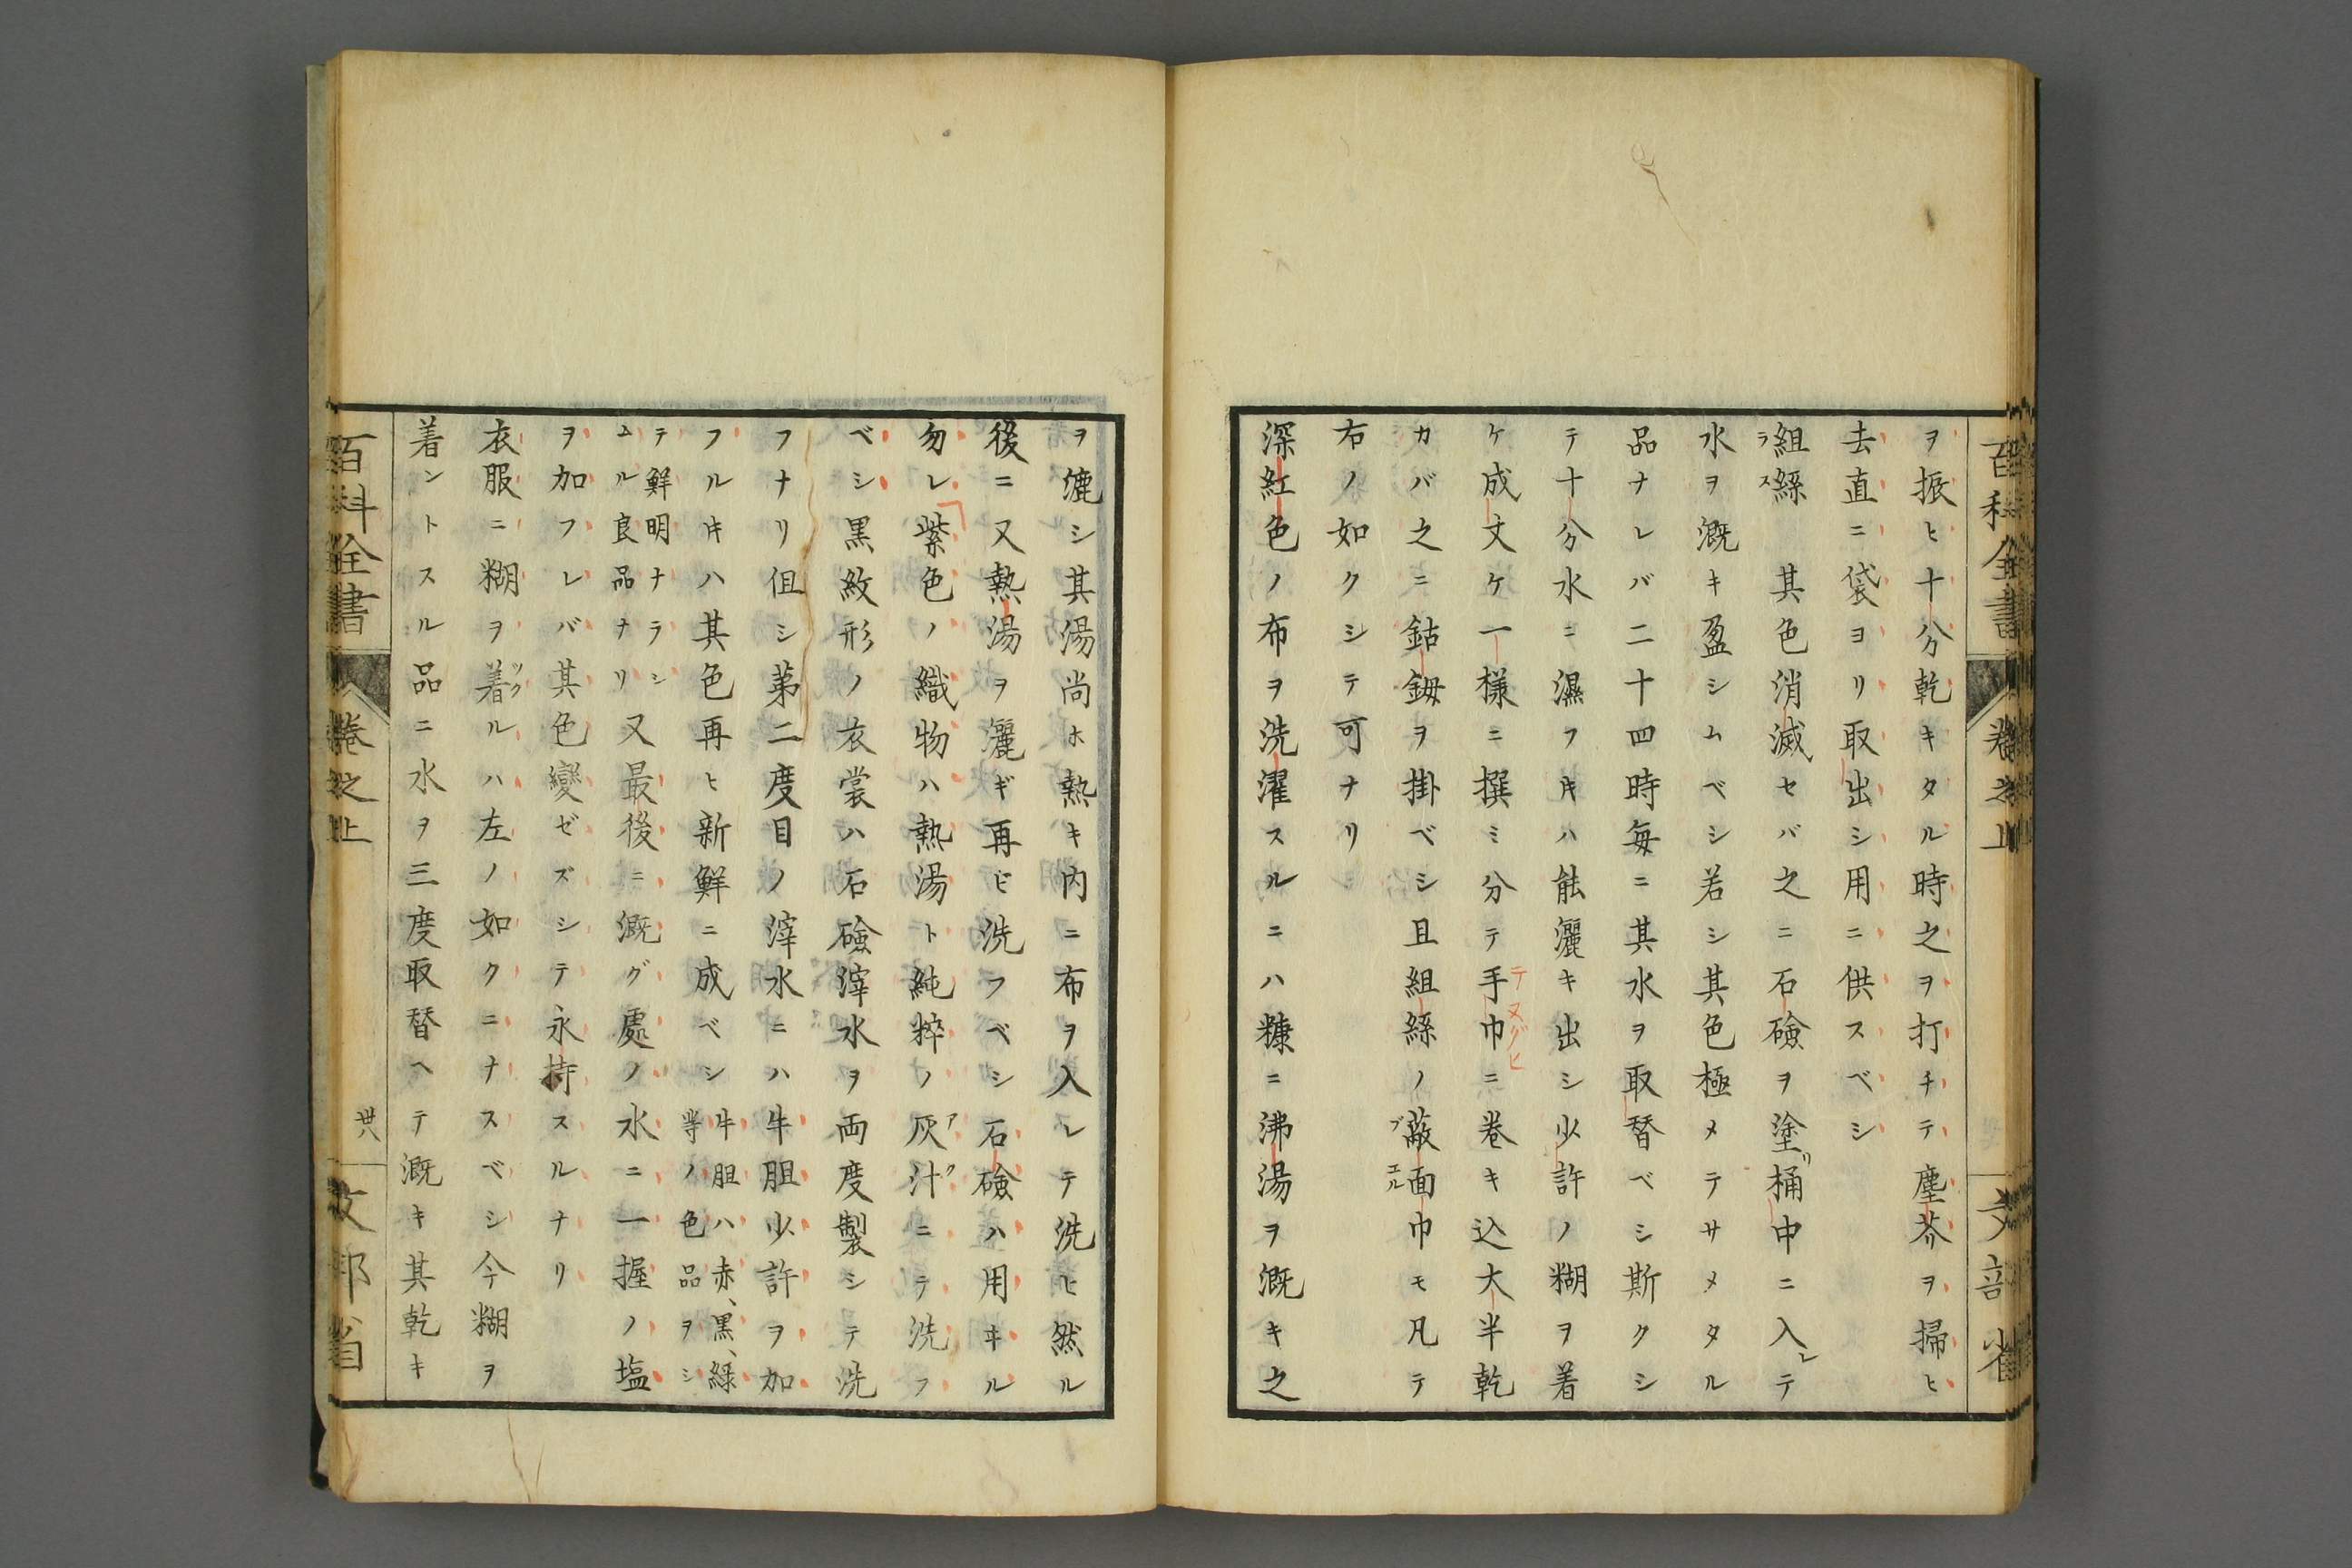 百科全書 卷之上 文部省
ヲ振ヒ十分乾キタル時之ヲ打チテ塵芥ヲ掃ヒ
去直ニ袋ヨリ取出シ用ニ供スベシ
組絲ラス 其色消滅セバ之ニ石鹼ヲ塗リ桶中ニ入レテ
水ヲ漑キ盈シムベシ若シ其色極メテサメタル
品ナレバ二十四時毎ニ其水ヲ取替ベシ斯クシ
テ十分水ニ濕フキハ能灑キ出シ少許ノ糊ヲ着
ケ成丈ケ一様ニ撰ミ分テ手巾テヌグヒニ巻キ込大半乾
カバ之ニ鈷鉧ヲ掛ベシ且組絲ノ蔽面巾ブエルモ凡テ
右ノ如クシテ可ナリ
深紅色ノ布ヲ洗濯スルニハ糠ニ沸湯ヲ漑キ之
ヲ漉シ其湯尚ホ熱キ内ニ布ヲ入レテ洗ヒ然ル
後ニ又熱湯ヲ灑ギ再ビ洗フベシ石鹼ハ用ヰル
勿レ紫色ノ織物ハ熱湯ト純粹ノ灰汁アクニテ洗フ
ベシ黒紋形ノ衣裳ハ石鹼滓水ヲ両度製シテ洗
フナリ但シ第二度目ノ滓水ニハ牛胆少許ヲ加
フルキハ其色再ヒ新鮮ニ成ベシ牛胆ハ赤、黒、緑
等ノ色品ヲシ
テ鮮明ナラシ
ムル良品ナリ又最後ニ漑グ處ノ水ニ一握ノ塩
ヲ加フレバ其色變ゼズシテ永持スルナリ
衣服ニ糊ヲ着ツクルハ左ノ如クニナスベシ今糊ヲ
着ントスル品ニ水ヲ三度取替ヘテ漑キ其乾キ
百科全書 卷之上 卅八 文部省